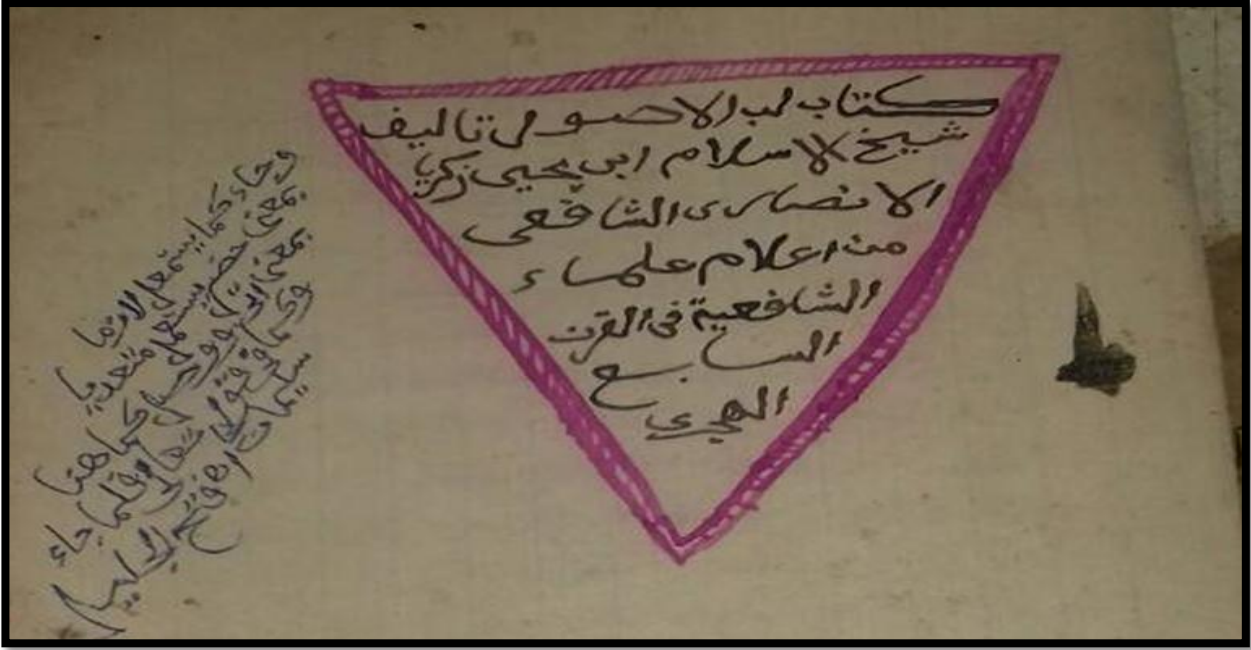 كتاب لب الاصول تاليف
شيخ الاسلام ابى يحيى زكريا
الانصارى الشافعى
من اعلام علماء
الشافعية فى القرن
السابع
الهجرى
وجاء كما يستعمل لازما
بمعنى حضر يستعمل متعديا
بمعنى اتى ووصل كما هنا
وكما فى قوله تعالى فلما جاء
سليمان